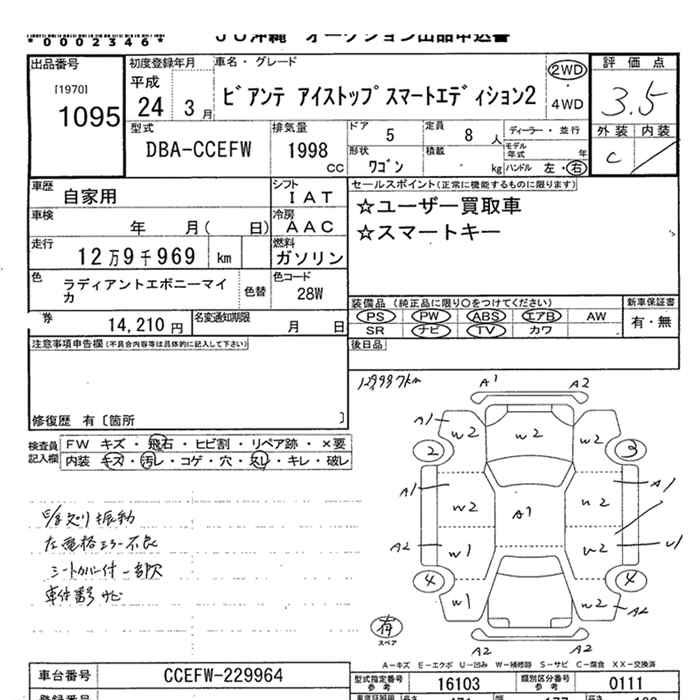 *0002346*
JU沖縄 オークション出品申込書
出品番号
[1970]
1095
初度登録年月
平成
24 3月
車名・グレード
ビアンテ アイストップスマートエディション2
2WD
4WD
評価点
3.5
外装 内装
C
型式
DBA-CCEFW
排気量
1998
CC
ドア 5
形状 ワゴン
定員 8人
積載 kg
ディーラー・並行
モデル年式 年
ハンドル 左・右
車歴 自家用
シフト IAT
車検 年 月( 日)
冷房 AAC
走行 12万9千969 km
燃料 ガソリン
色 ラディアントエボニーマイカ
色替
色コード 28W
券 14,210円
名変通知期限 月 日
セールスポイント(正常に機能するものに限ります)
☆ユーザー買取車
☆スマートキー
装備品(純正品に限り○をつけてください)
新車保証書
PS PW ABS エアB AW
SR ナビ TV カワ
有・無
後日品
注意事項申告欄(不具合内容等は具体的に記入して下さい)
修復歴 有〔箇所 〕
検査員記入欄
FW キズ・飛石・ヒビ割・リペア跡・×要
内装 キズ・汚レ・コゲ・穴・スレ・キレ・破レ
129987km
振動
左電格ミラー不良
シートカバー付 一部欠
車体番号 サビ
A1 A2
A1 W2 W2 W2
2 3
A1 A1
W2 A1 W2
A2 W1 W2 U1
4 4
W1 W2 A2
A2 A2
有
スペア
A-キズ E-エクボ U-凹み W-補修跡 S-サビ C-腐食 XX-交換済
車台番号 CCEFW-229964
型式指定番号 参考 16103
類別区分番号 参考 0111
登録番号